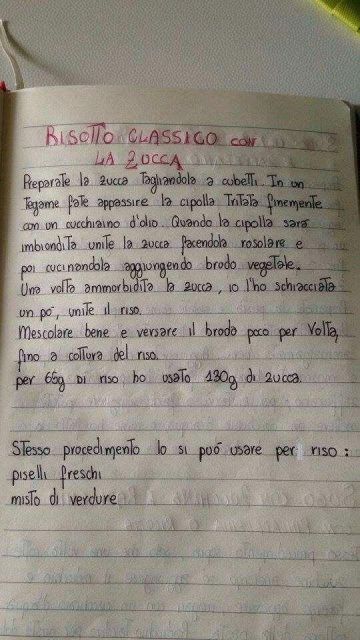 RISOTTO CLASSICO con
LA ZUCCA
Preparate la zucca tagliandola a cubetti. In un
tegame fate appassire la cipolla tritata finemente
con un cucchiaino d'olio. Quando la cipolla sará
imbiondita unite la zucca facendola rosolare e
poi cucinandola aggiungendo brodo vegetale.
Una volta ammorbidita la zucca, io l'ho schiacciata
un pó, unite il riso.
Mescolare bene e versare il brodo poco per volta,
fino a cottura del riso.
per 65g Di riso ho usato 130g di zucca.
Stesso procedimento lo si puó usare per riso:
piselli freschi
misto di verdure